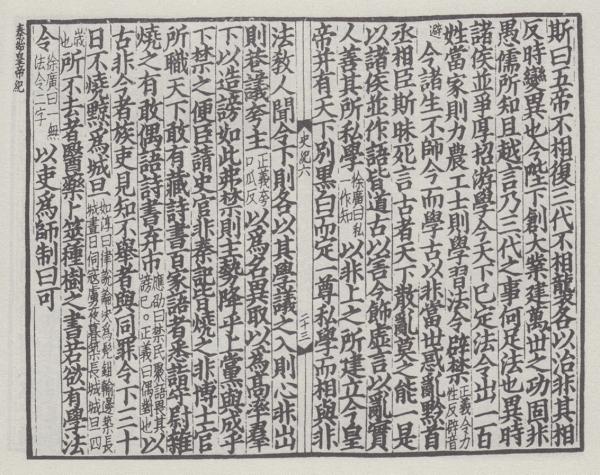 斯曰五帝不相復三代不相襲各以治非其相
反時變異也今陛下創大業建萬世之功固非
愚儒所知且越言乃三代之事何足法也異時
諸侯並爭厚招游學今天下已定法令出一百
姓當家則力農工士則學習法令辟禁正義令力性反辟音
避今諸生不師今而學古以非當世惑亂黔首
丞相臣斯昧死言古者天下散亂莫之能一是
以諸侯並作語皆道古以害今飾虛言以亂實
人善其所私學徐廣曰私作知以非上之所建立今皇
帝并有天下別黑白而定一尊私學而相與非
史紀六
二十三
法教人聞令下則各以其學議之入則心非出
則巷議夸主正義夸口瓜反以爲名異取以爲高率羣
下以造謗如此弗禁則主勢降乎上黨與成乎
下禁之便臣請史官非秦記皆燒之非博士官
所職天下敢有藏詩書百家語者悉詣守尉雜
燒之有敢偶語詩書弃市應劭曰禁民聚語畏其謗已。正義曰偶對也以
古非今者族吏見知不舉者與同罪令下三十
日不燒黥爲城旦如淳曰律說論決爲髡鉗輸邊築長城晝日伺寇虜夜暮築長城城旦四
歲也所不去者醫藥卜筮種樹之書若欲有學法
令徐廣曰一無法令二字以吏爲師制曰可
秦始皇帝紀